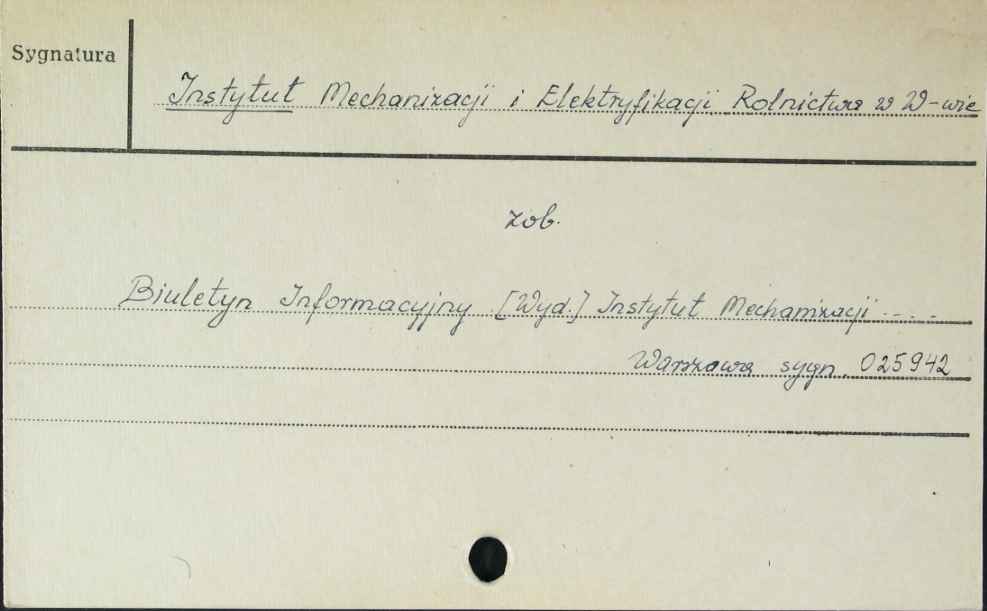 Sygnatura
Instytut Mechanizacji i Elektryfikacji Rolnictwa w W-wie
zob.
Biuletyn Informacyjny [Wyd.] Instytut Mechanizacji ....
Warszawa sygn. 025942